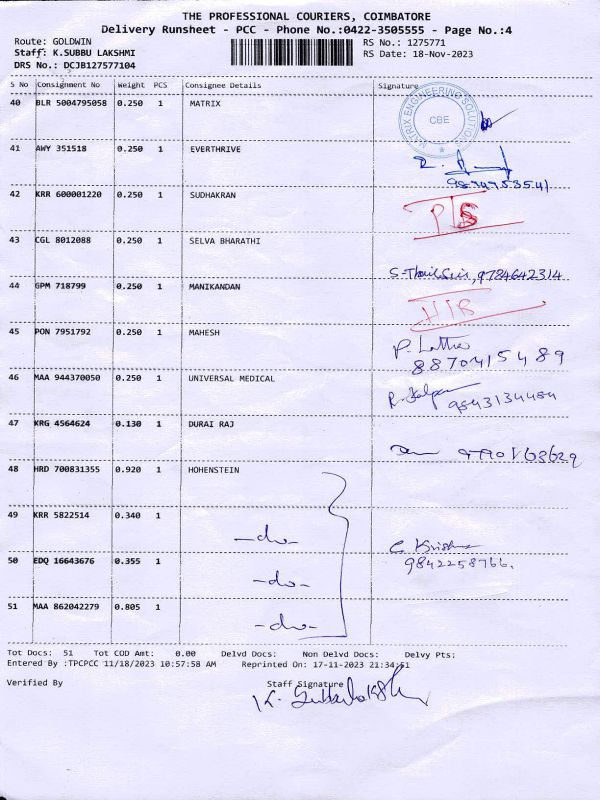 THE PROFESSIONAL COURIERS, COIMBATORE
Delivery Runsheet - PCC - Phone No.:0422-3505555 - Page No.:4
Route: GOLDWIN RS No.: 1275771
Staff: K.SUBBU LAKSHMI RS Date: 18-Nov-2023
DRS No.: DCJB127577104
S No Consignment No Weight PCS Consignee Details Signature
40 BLR 5004795058 0.250 1 MATRIX
MATRIX ENGINEERING SOLUTIONS
CBE
41 AWY 351518 0.250 1 EVERTHRIVE
R.
9874753541
42 KRR 600001220 0.250 1 SUDHAKRAN
43 CGL 8012088 0.250 1 SELVA BHARATHI
9784642314
44 GPM 718799 0.250 1 MANIKANDAN
45 PON 7951792 0.250 1 MAHESH
P. Latha
8870415489
46 MAA 944370050 0.250 1 UNIVERSAL MEDICAL
R. Kalpana
9843134484
47 KRG 4564624 0.130 1 DURAI RAJ
48 HRD 700831355 0.920 1 HOHENSTEIN
49 KRR 5822514 0.340 1
-do-
C. Krishna
50 EDQ 16643676 0.355 1 9842258766.
-do-
51 MAA 862042279 0.805 1
-do-
Tot Docs: 51 Tot COD Amt: 0.00 Delvd Docs: Non Delvd Docs: Delvy Pts:
Entered By :TPCPCC 11/18/2023 10:57:58 AM Reprinted On: 17-11-2023 21:34:51
Verified By Staff Signature
K. Subbulakshmi